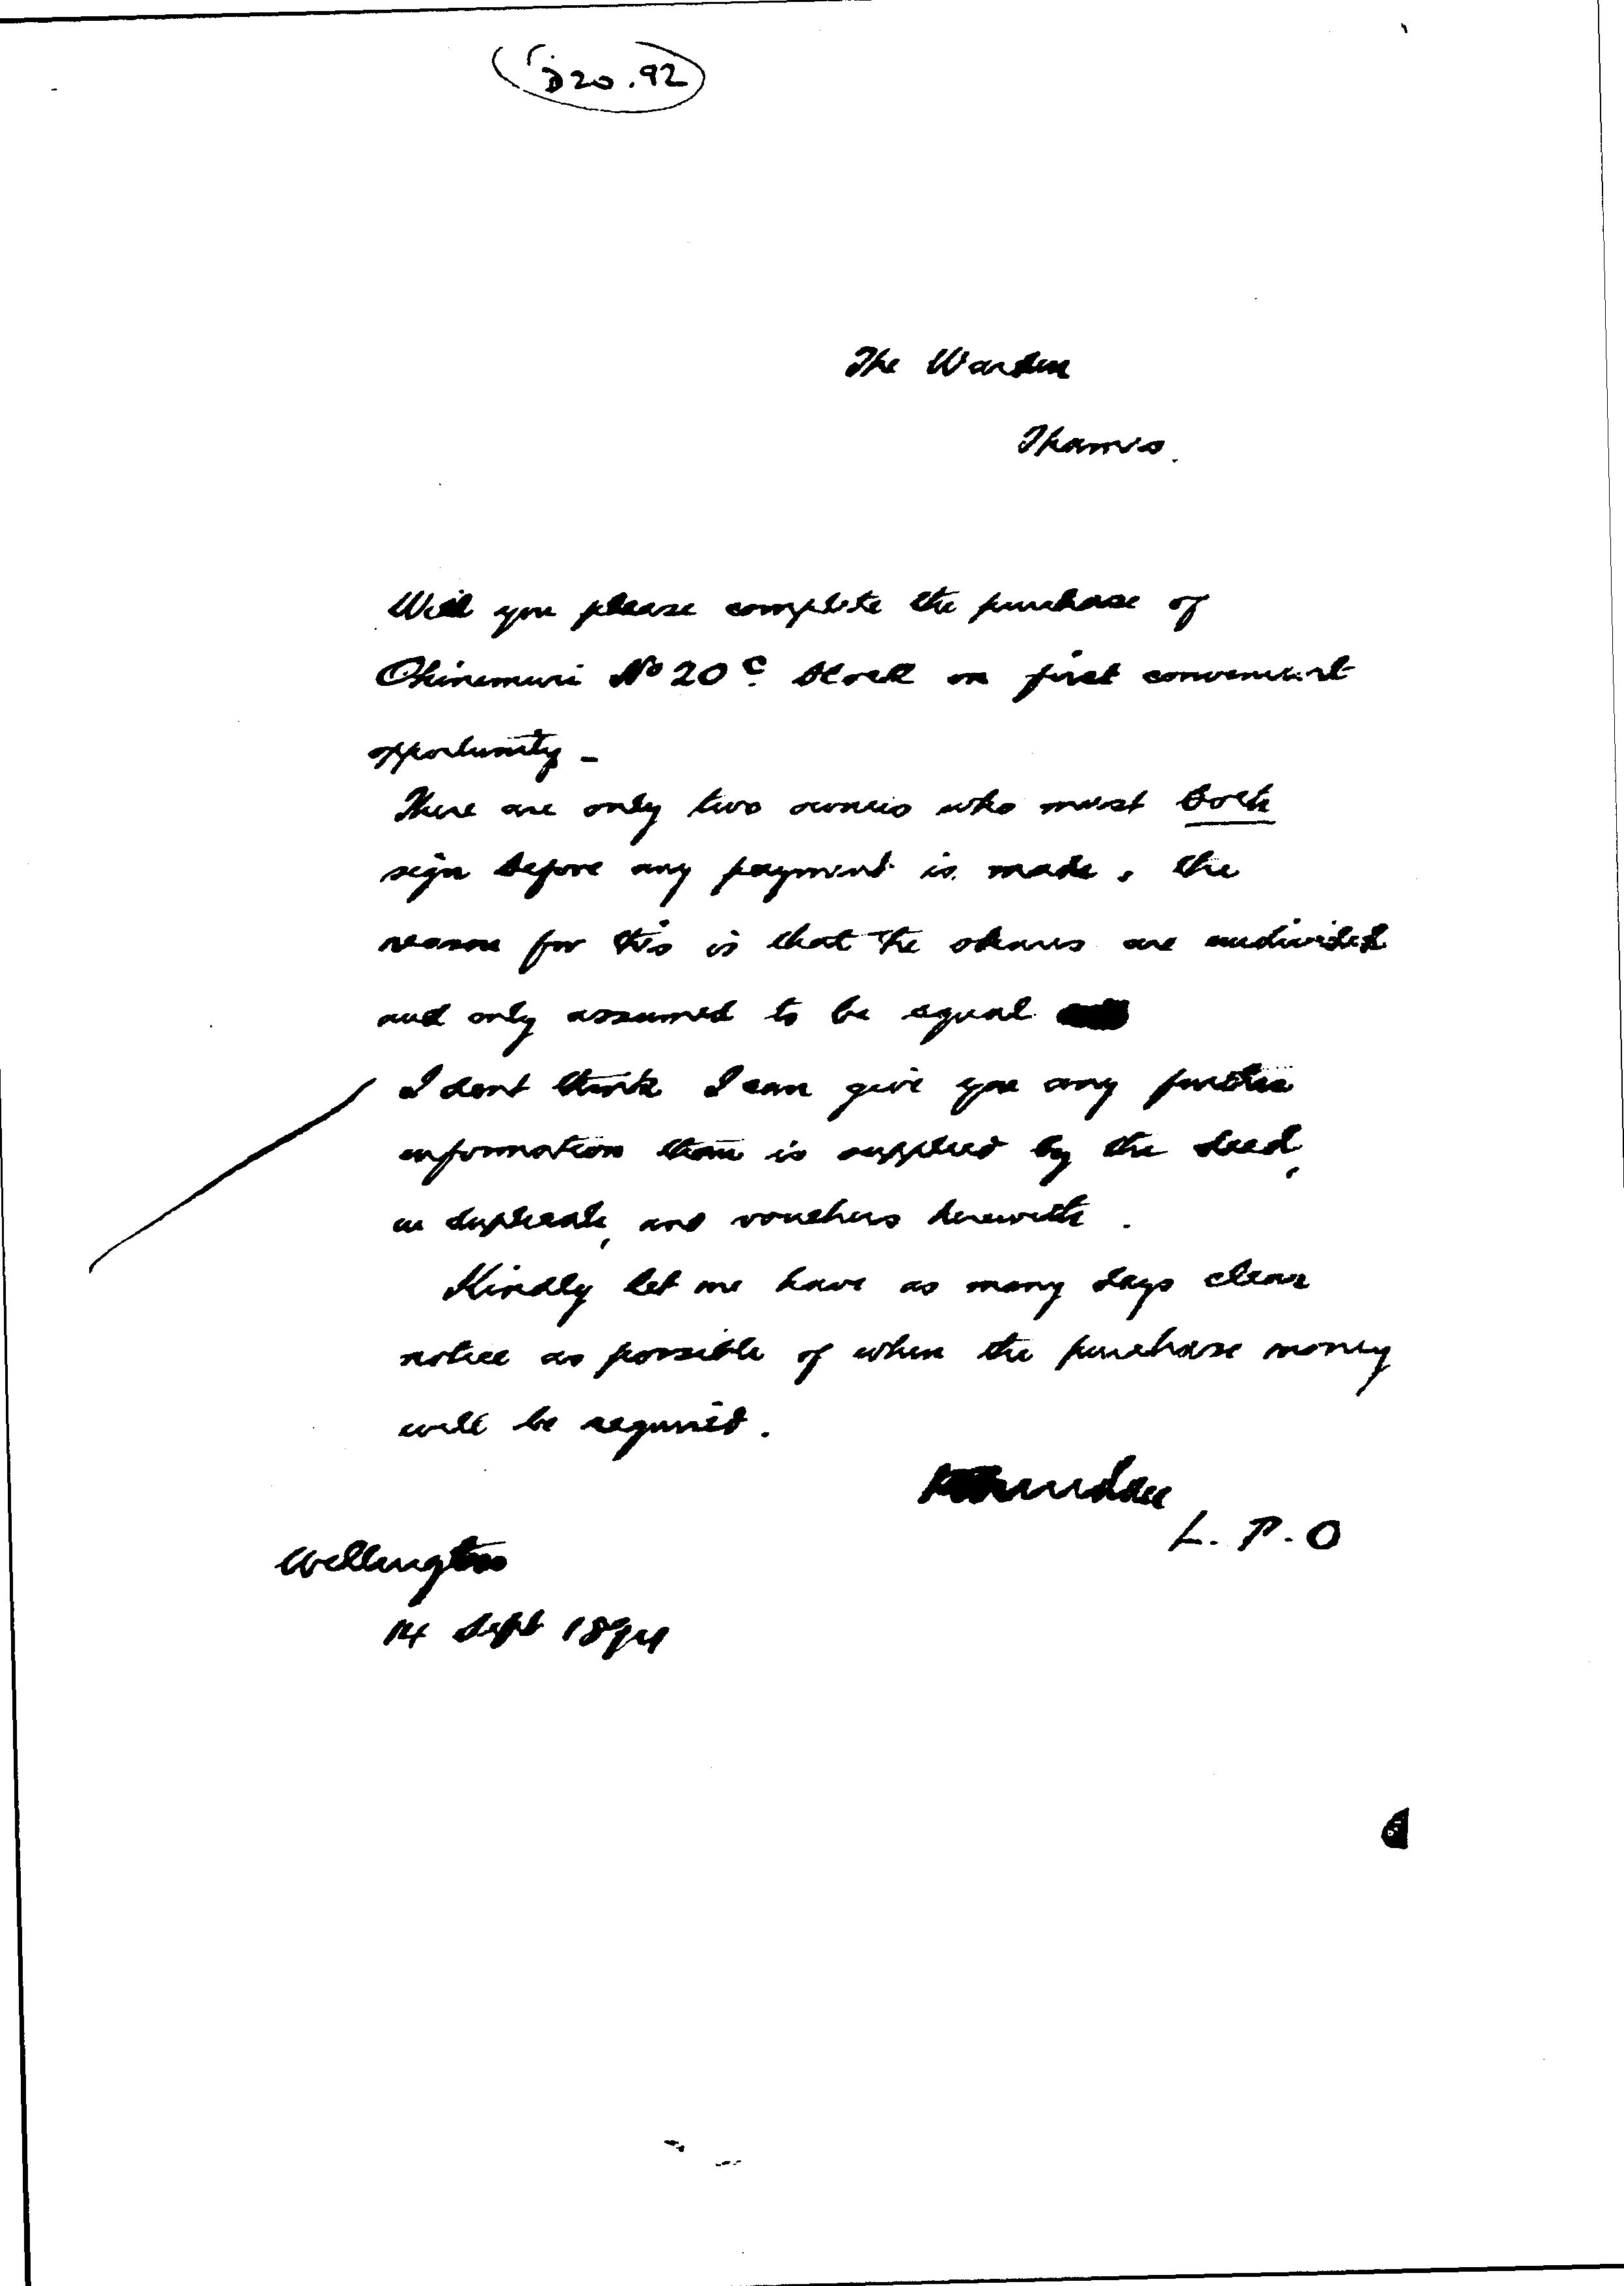 D20.92
The Warden
Thames.
Will you please complete the purchase of
Ohinemuri No 20C block on first convenient
opportunity –
There are only two owners who must both
sign before any payment is made, the
reason for this is that the shares are undivided
and only assumed to be equal
I dont think I can give you any further
information than is supplied by the deed,
in duplicate, and vouchers herewith.
Kindly let me have as many days clear
notice as possible of when the purchase money
will be required.
L.P.O
Wellington
14 Sept 1894